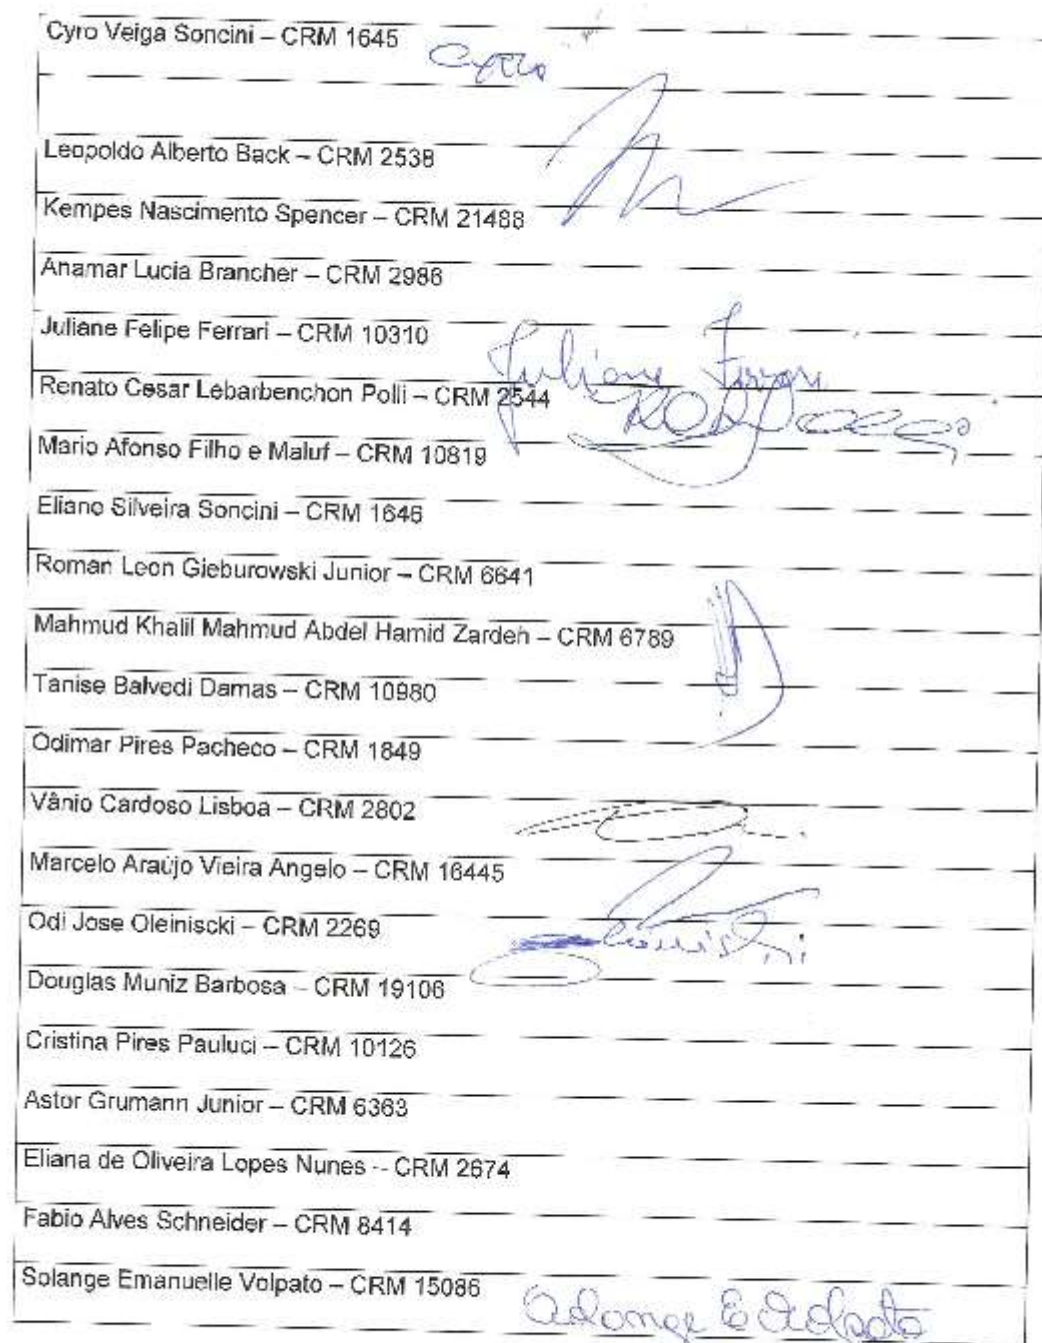 Cyro Veiga Soncini – CRM 1645
Cyro
Leopoldo Alberto Back – CRM 2538
Kempes Nascimento Spencer – CRM 21488
Anamar Lucia Brancher – CRM 2986
Juliane Felipe Ferrari – CRM 10310
Juliane Ferrari
Renato Cesar Lebarbenchon Polli – CRM 2544
Mario Afonso Filho e Maluf – CRM 10819
Eliane Silveira Soncini – CRM 1646
Roman Leon Gieburowski Junior – CRM 6641
Mahmud Khalil Mahmud Abdel Hamid Zardeh – CRM 6789
Tanise Balvedi Damas – CRM 10980
Odimar Pires Pacheco – CRM 1849
Vânio Cardoso Lisboa – CRM 2802
Marcelo Araújo Vieira Angelo – CRM 16445
Odi Jose Oleiniscki – CRM 2269
Douglas Muniz Barbosa – CRM 19106
Cristina Pires Pauluci – CRM 10126
Astor Grumann Junior – CRM 6363
Eliana de Oliveira Lopes Nunes – CRM 2674
Fabio Alves Schneider – CRM 8414
Solange Emanuelle Volpato – CRM 15086
Solange E Volpato